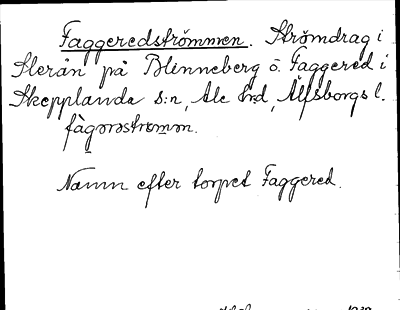 Faggeredströmmen. Strömdrag i
Slerån på Blinneberg o. Faggered i
Skepplanda s:n, Ale hrd, Älfsborgs l.
fàgərəstrəmən.
Namn efter torpet Faggered.